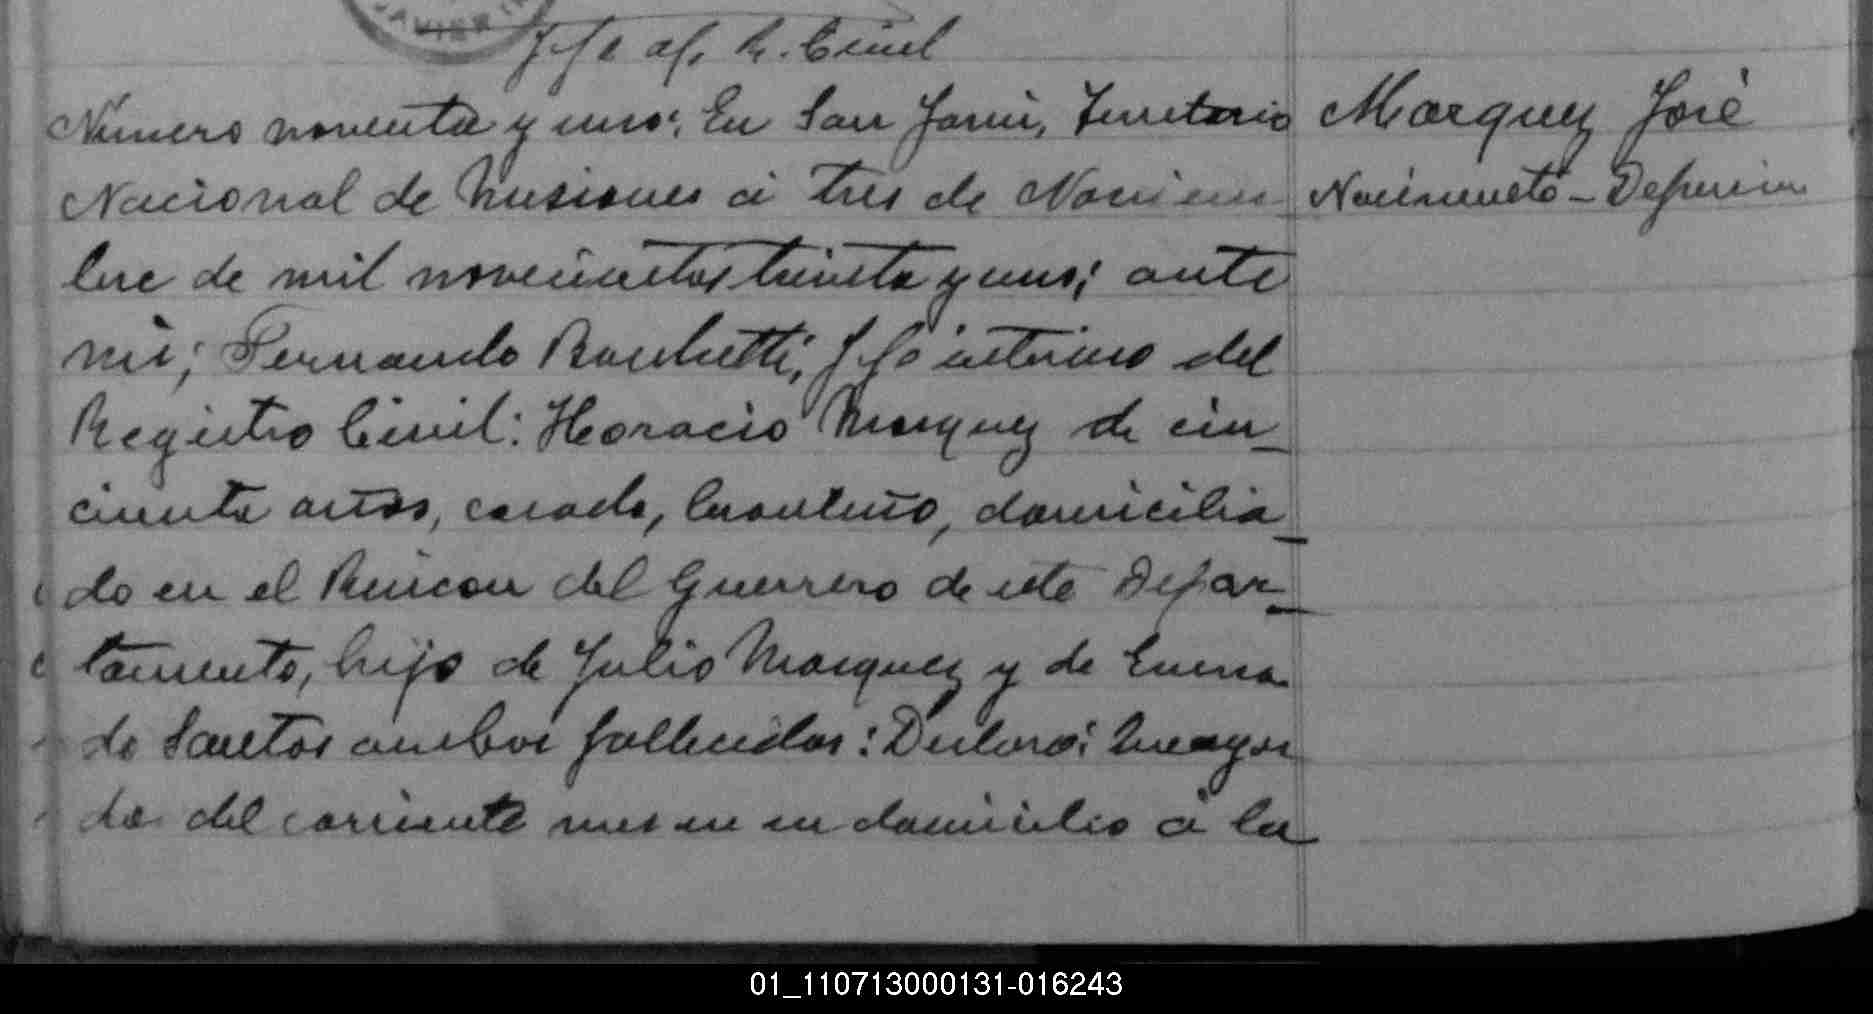 JAVIER
Jefe af. R. Civil
Número noventa y uno: En San Javier, Territorio
Nacional de Misiones á tres de Noviem
bre de mil novecientos treinta y uno; ante
mi; Fernando Jefe interino del
Registro Civil: Horacio Marquez de cin_
cuenta años, casado, brasileño, domicilia_
do en el Rincon del Guerrero de este Depar_
tamento, hijo de Julio Marquez y de
do Santos ambos fallecidos: Declaró:
dos del corriente mes en su domicilio á la
Marquez José
Nacimiento - Defuncion
01_110713000131-016243